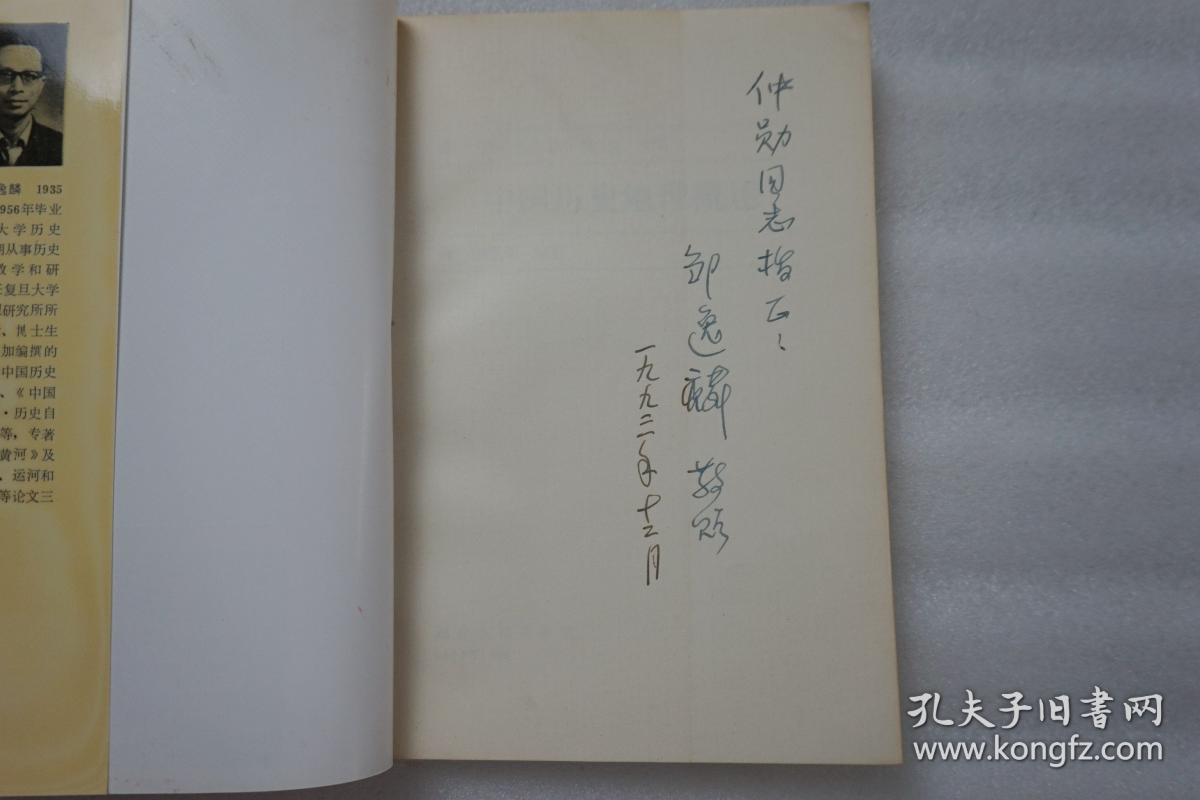 逸麟 1935
956年毕业
大学历史
期从事历史
教学和研
复旦大学
研究所所
、博士生
加编撰的
中国历史
、《中国
·历史自
等,专著
黄河》及
、运河和
等论文三
仲勋同志指正:
邹逸麟 敬贻
一九九三年十二月
孔夫子旧书网
www.kongfz.com